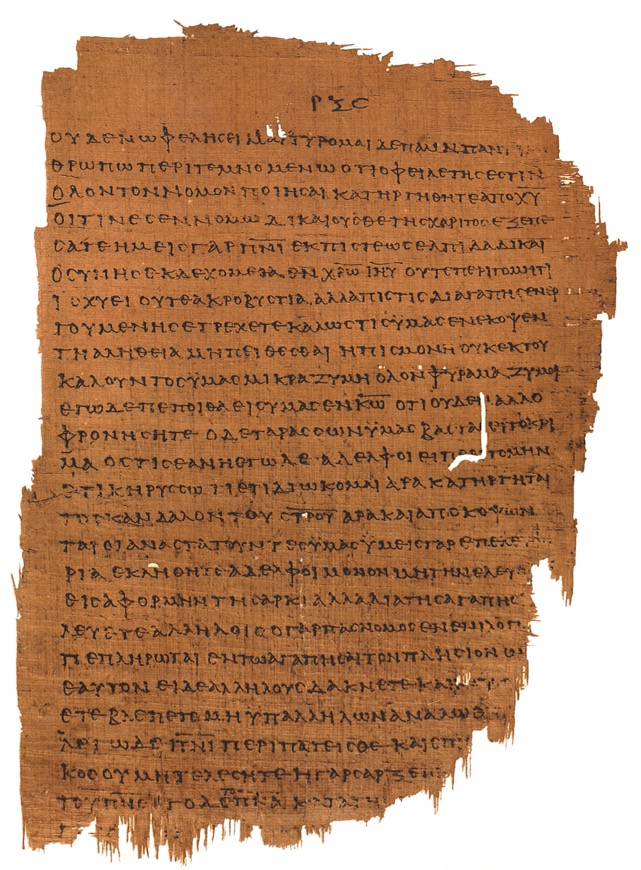 ΡΞϚ
ΟΥΔΕΝΩΦΕΛΗϹΕΙΜΑΡΤΥΡΟΜΑΙΔΕΠΑΛΙΝΠΑΝ
ΘΡΩΠΩΠΕΡΙΤΕΜΝΟΜΕΝΩΟΤΙΟΦΕΙΛΕΤΗϹΕϹΤΙΝ
ΟΛΟΝΤΟΝΝΟΜΟΝΠΟΙΗϹΑΙΚΑΤΗΡΓΗΘΗΤΕΑΠΟΧ̅Υ̅
ΟΙΤΙΝΕϹΕΝΝΟΜΩΔΙΚΑΙΟΥϹΘΕΤΗϹΧΑΡΙΤΟϹΕΞΕΠΕ
ϹΑΤΕΗΜΕΙϹΓΑΡΠ̅Ν̅Ι̅ΕΚΠΙϹΤΕΩϹΕΛΠΙΔΑΔΙΚΑΙ
ΟϹΥΝΗϹΕΚΔΕΧΟΜΕΘΑΕΝΧ̅Ρ̅Ω̅Ι̅Η̅Υ̅ΟΥΤΕΠΕΡΙΤΟΜΗΤΙ
ΙϹΧΥΕΙΟΥΤΕΑΚΡΟΒΥϹΤΙΑΑΛΛΑΠΙϹΤΙϹΔΙΑΓΑΠΗϹΕΝΕΡ
ΓΟΥΜΕΝΗϹΕΤΡΕΧΕΤΕΚΑΛΩϹΤΙϹΫΜΑϹΕΝΕΚΟΨΕΝ
ΤΗΑΛΗΘΕΙΑΜΗΠΕΙΘΕϹΘΑΙΗΠΙϹΜΟΝΗΟΥΚΕΚΤΟΥ
ΚΑΛΟΥΝΤΟϹΫΜΑϹΜΙΚΡΑΖΥΜΗΟΛΟΝΦΥΡΑΜΑΖΥΜΟΙ
ΕΓΩΔΕΠΕΠΟΙΘΑΕΙϹΫΜΑϹΕΝΚ̅Ω̅ΟΤΙΟΥΔΕΝΑΛΛΟ
ΦΡΟΝΗϹΗΤΕΟΔΕΤΑΡΑϹϹΩΝΫΜΑϹΒΑϹΤΑϹΕΙΤΟΚΡΙ
ΜΑΟϹΤΙϹΕΑΝΗΕΓΩΔΕΑΔΕΛΦΟΙΕΙΠΕΡΙΤΟΜΗΝ
ΕΤΙΚΗΡΥϹϹΩΤΙΕΤΙΔΙΩΚΟΜΑΙΑΡΑΚΑΤΗΡΓΗΤΑΙ
ΤΟϹΚΑΝΔΑΛΟΝΤΟΥϹ̅Τ̅Ρ̅ΟΥΑΡΑΚΑΙΑΠΟΚΟΨΩΝ
ΤΑΙΟΙΑΝΑϹΤΑΤΟΥΝΤΕϹΫΜΑϹΫΜΕΙϹΓΑΡΕΠΕΛΕ
ΡΙΑΕΚΛΗΘΗΤΕΑΔΕΛΦΟΙΜΟΝΟΝΜΗΤΗΝΕΛΕΥ
ΕΙϹΑΦΟΡΜΗΝΤΗϹΑΡΚΙΑΛΛΑΔΙΑΤΗϹΑΓΑΠΗϹ
ΛΕΥΕΤΕΑΛΛΗΛΟΙϹΟΓΑΡΠΑϹΝΟΜΟϹΕΝΕΝΙΛΟΓ
ΠΕΠΛΗΡΩΤΑΙΕΝΤΩΑΓΑΠΗϹΕΙϹΤΟΝΠΛΗϹΙΟΝ
ΕΑΥΤΟΝΕΙΔΕΑΛΛΗΛΟΥϹΔΑΚΝΕΤΕΚΑΙ
ΕΤΕΒΛΕΠΕΤΕΜΗΫΠΑΛΛΗΛΩΝΑΝΑΛΩΘ
ΛΕΓΩΔΕΠ̅Ν̅Ι̅ΠΕΡΙΠΑΤΕΙΤΕΚΑΙΕΠ
ΚΟϹΟΥΜΗΤΕΛΕϹΗΤΕΗΓΑΡϹΑΡΞΕΠΙ
ΤΟΥΠ̅Ν̅Ϲ̅ΤΟΔΕΠ̅Ν̅Α̅ΚΑΤΑΤΗ